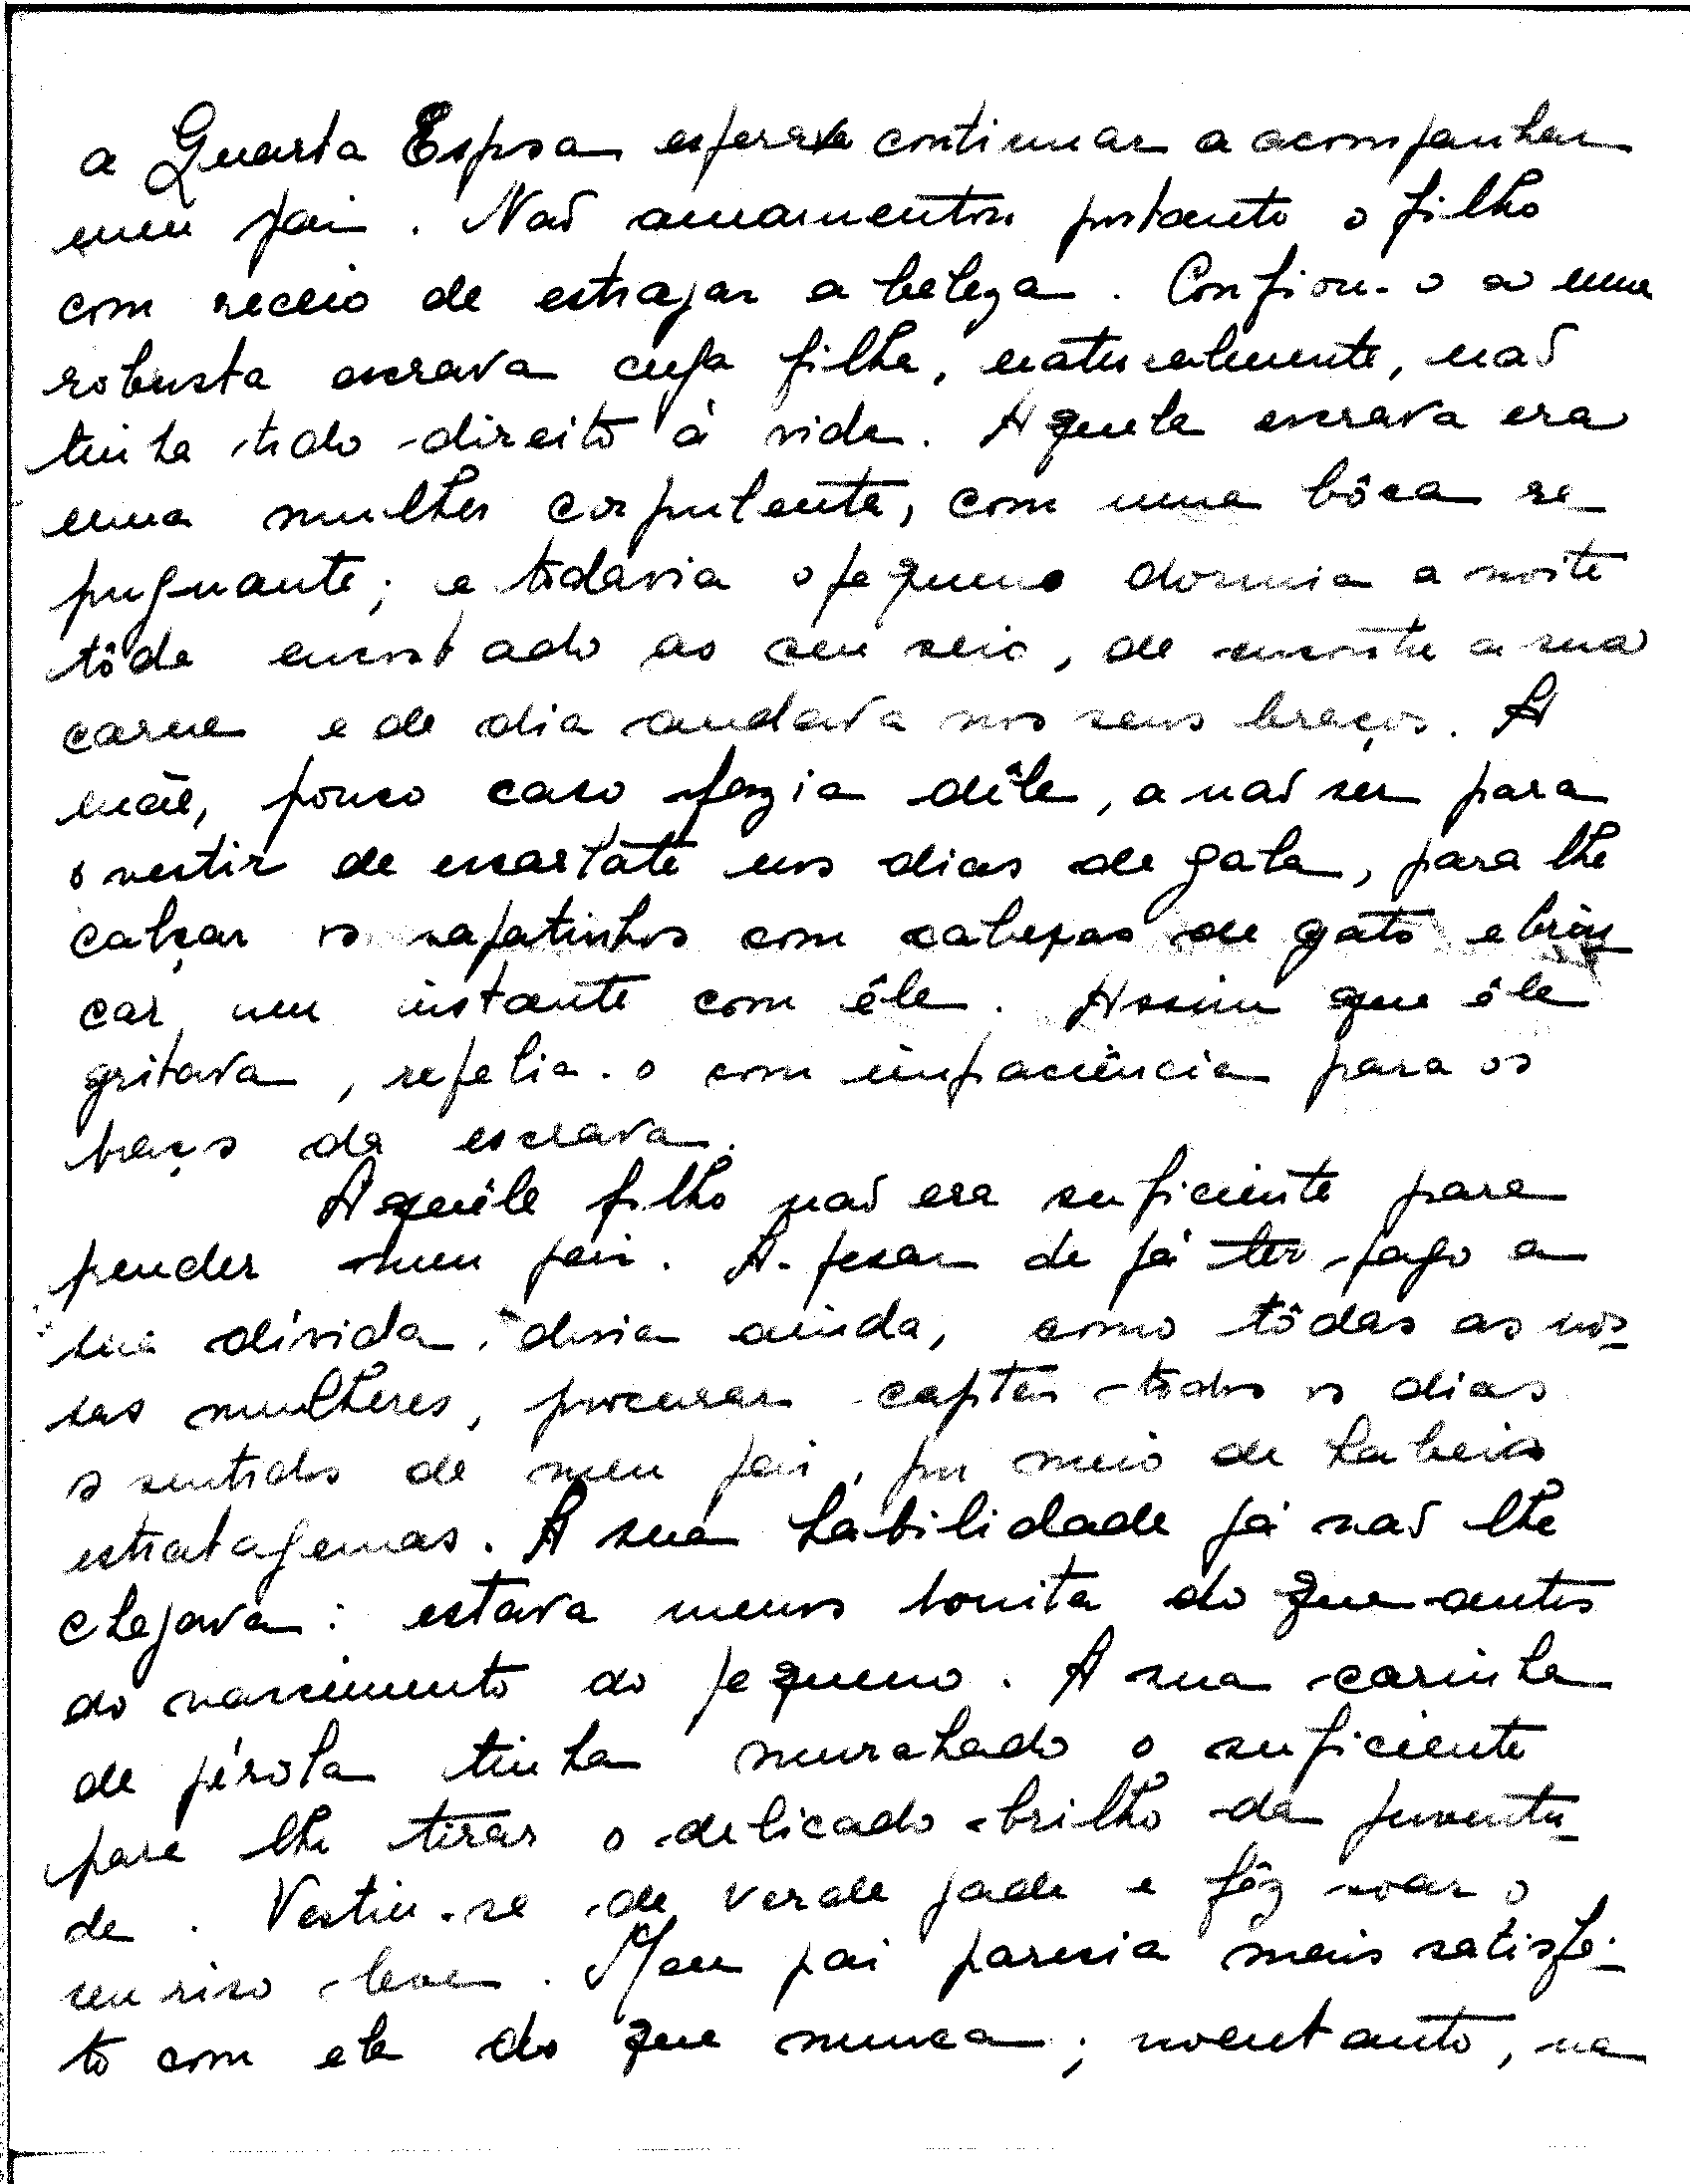 a Quarta Esposa esperava continuar a acompanhar
meu pai. Não amamentou portanto o filho
com receio de estragar a beleza. Confiou-o a uma
robusta escrava cuja filha, naturalmente, não
tinha tido direito à vida. Aquela escrava era
uma mulher corpulenta, com uma bôca re_
pugnante; e todavia o pequeno dormia a noite
tôda encostado ao seu seio, de encontro a sua
carne e de dia andava nos seus braços. A
mãe, pouco caso fazia dêle, a não ser para
o vestir de escarlate nos dias de gala, para lhe
calçar os sapatinhos com cabeças de gato e brin_
car um instante com êle. Assim que êle
gritava, repelia-o com impaciência para os
braços da escrava.
Aquêle filho não era suficiente para
prender meu pai. A-pesar de já ter pago a
sua dívida, devia ainda, como tôdas as nos_
sas mulheres, procurar captar todos os dias
os sentidos de meu pai, por meio de habeis
estratagemas. A sua habilidade já não lhe
chegava: estava menos bonita do que antes
do nascimento do pequeno. A sua carinha
de pérola tinha murchado o suficiente
para lhe tirar o delicado brilho da juventu_
de. Vestiu-se de verde jade e fêz soar o
seu riso leve. Meu pai parecia mais satisfei_
to com ela do que nunca; no entanto, na